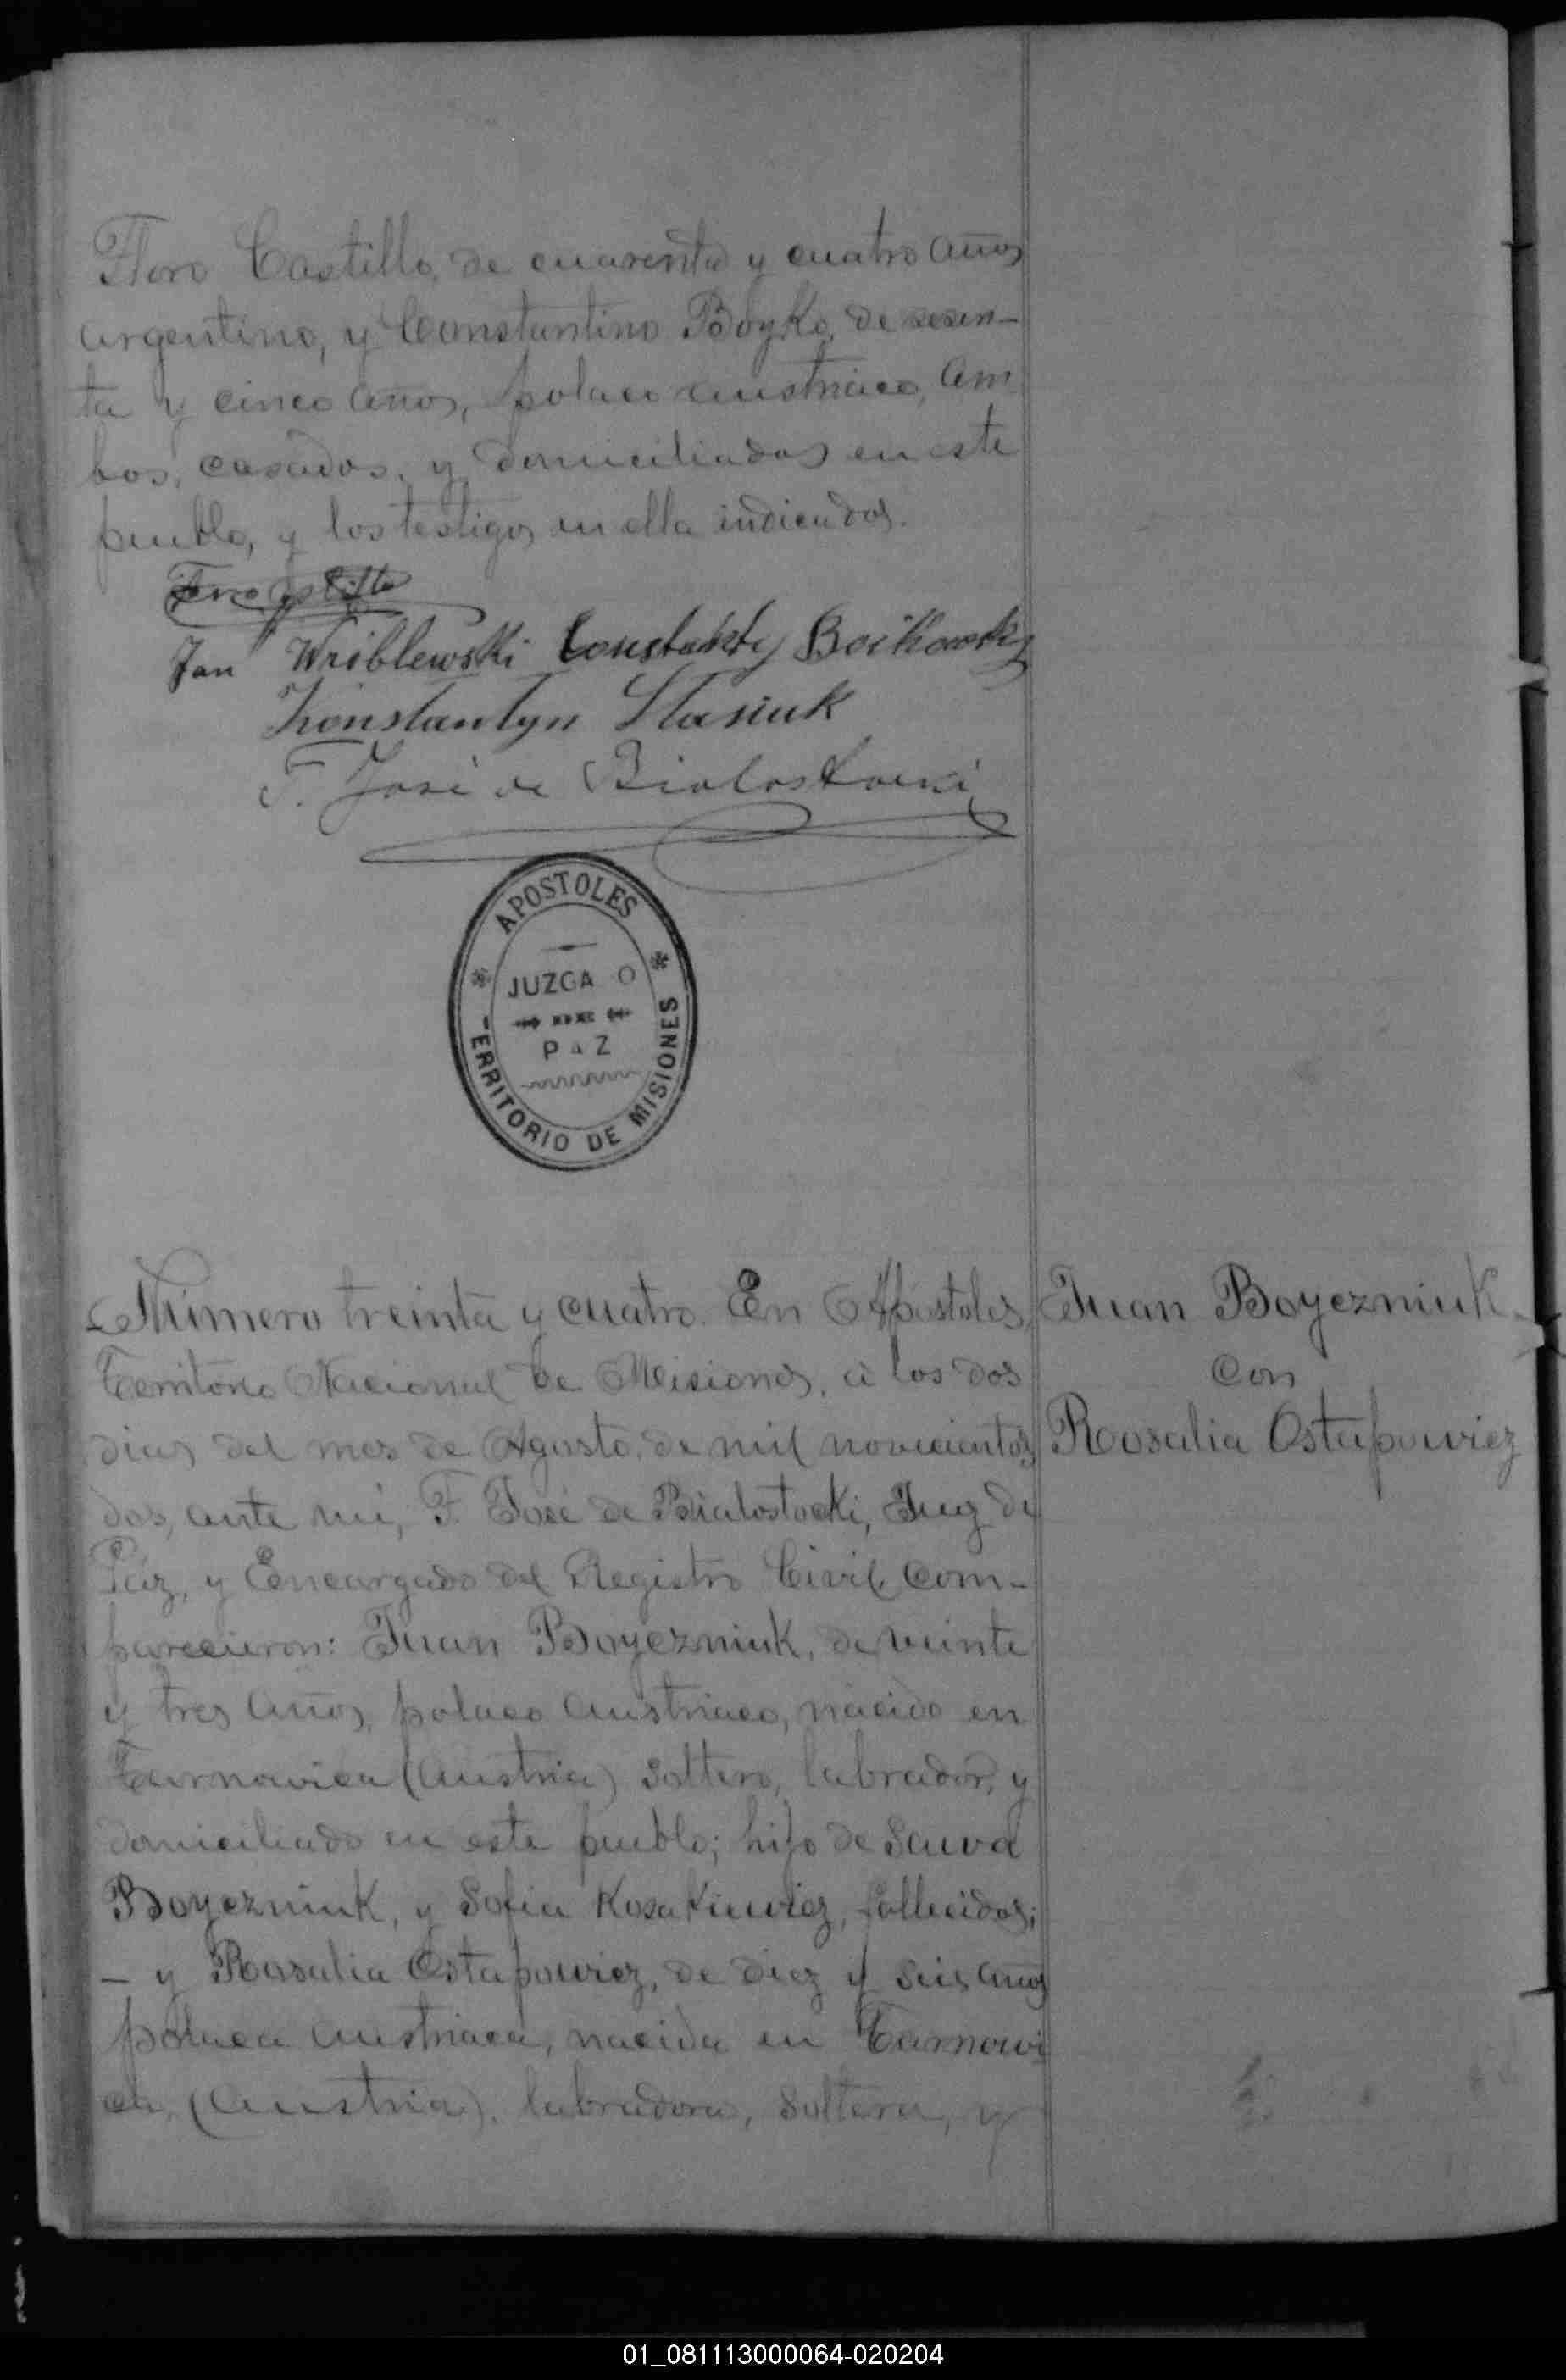 Floro Castillo, de cuarenta y cuatro años
argentino, y Constantino Boyko, de sesen-
ta y cinco años, polaco austriaco, am
bos, casados, y domiciliados en este
pueblo, y los testigos en ella indicados.
Jan Wróblewski Constanty Boikowsky
Konstantyn Stasiuk
F. José de Bialostocki
APOSTOLES
JUZGA O
DE
PAZ
ERRITORIO DE MISIONES
Número treinta y cuatro. En Apóstoles,
Territorio Nacional de Misiones, á los dos
dias del mes de Agosto de mil novecientos
dos, ante mí, F. José de Bialostocki, Juez de
Paz, y Encargado del Registro Civil, com-
parecieron: Juan Boyezniuk, de veinte
y tres años, polaco austriaco, nacido en
Tarnawica (Austria) soltero, labrador, y
domiciliado en este pueblo; hijo de Sawa
Boyezniuk, y Sofia Kosakiewicz, fallecidos;
– y Rosalia Ostapowicz, de diez y seis años
polaca austriaca, nacida en Tarnawi
ca, (Austria), labradora, soltera, y
Juan Boyezniuk
Con
Rosalia Ostapowicz
01_081113000064-020204